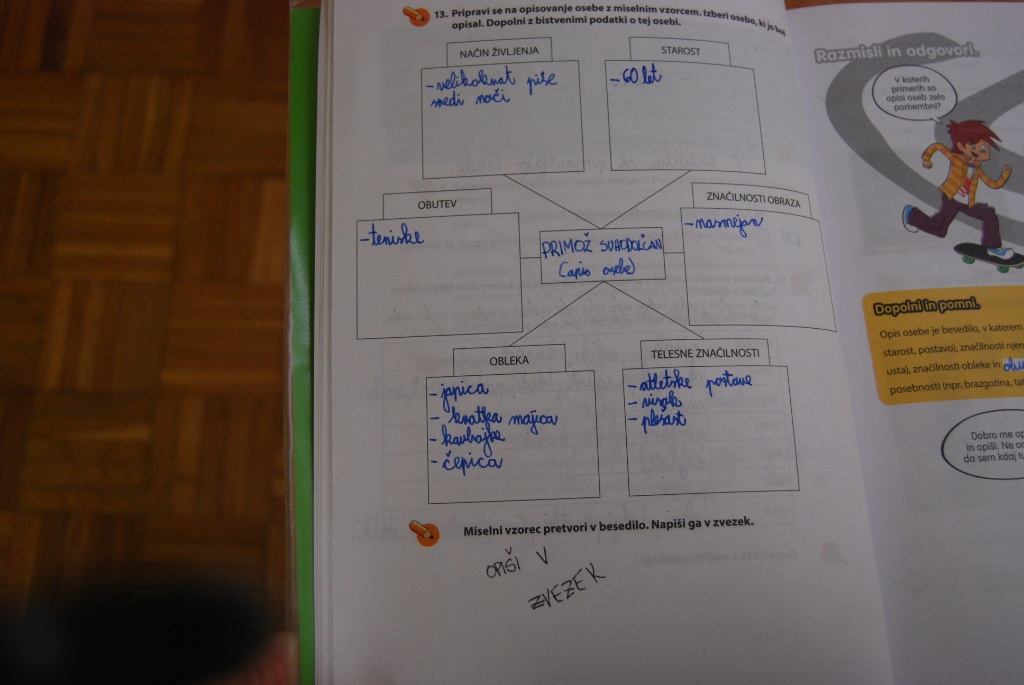 13. Pripravi se na opisovanje osebe z miselnim vzorcem. Izberi osebo, ki jo boš
opisal. Dopolni z bistvenimi podatki o tej osebi.
NAČIN ŽIVLJENJA
- velikokrat piše
sredi noči
STAROST
- 60 let
OBUTEV
- teniske
PRIMOŽ SUHODOLČAN
(opis osebe)
ZNAČILNOSTI OBRAZA
- nasmejan
OBLEKA
- jopica
- kratka majica
- kavbojke
- čepica
TELESNE ZNAČILNOSTI
- atletske postave
- visok
- plešast
Miselni vzorec pretvori v besedilo. Napiši ga v zvezek.
OPIŠI V
ZVEZEK
Razmisli in odgovori.
V katerih
primerih so
opisi oseb zelo
pomembni?
Dopolni in pomni.
Opis osebe je besedilo, v katerem
starost, postavo), značilnosti njen
usta), značilnosti obleke in
posebnosti (npr. brazgotina, tat
Dobro me op
in opiši. Ne
da sem kdaj tu